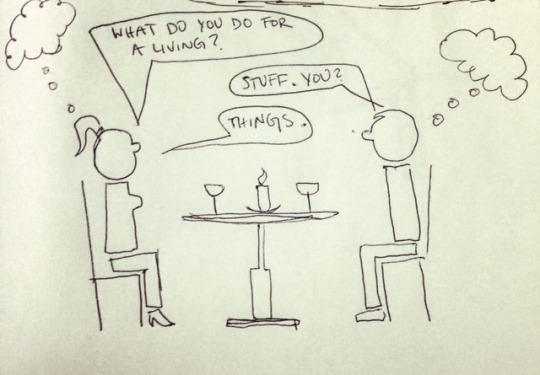 WHAT DO YOU DO FOR
A LIVING?
STUFF. YOU?
THINGS.